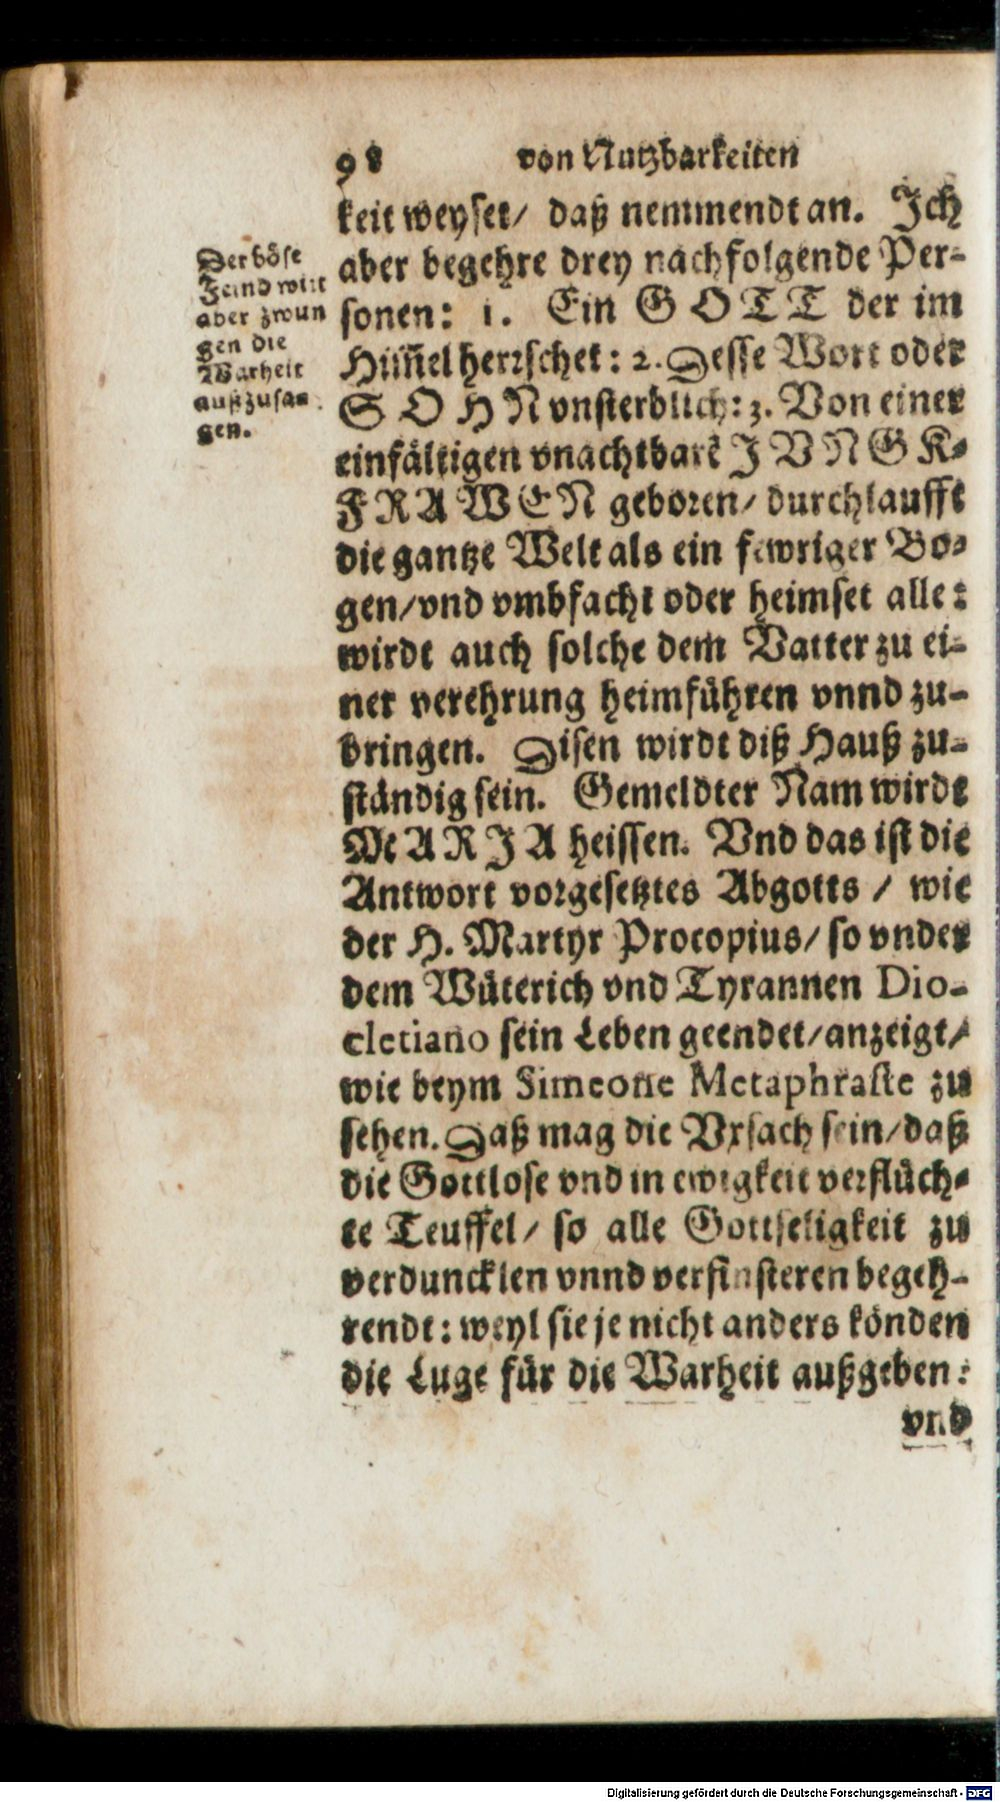 98 von Nutzbarkeiten
keit weyset/ daß nemmendt an. Ich
aber begehre drey nachfolgende Per-
sonen: 1. Ein GOTT der im
Him̃el herrschet: 2. Desse Wort oder
SOHN vnsterblich: 3. Von einer
einfältigen vnachtbarẽ JVNGK-
FRAWEN geboren/ durchlaufft
die gantze Welt als ein fewriger Bo-
gen/ vnd vmbfacht oder heimset alle:
wirdt auch solche dem Vatter zu ei-
ner verehrung heimführen vnnd zu-
bringen. Disen wirdt diß Hauß zu-
ständig sein. Gemeldter Nam wirdt
MARJA heissen. Vnd das ist die
Antwort vorgesetztes Abgotts / wie
der H. Martyr Procopius/ so vnder
dem Wüterich vnd Tyrannen Dio-
cletiano sein Leben geendet/ anzeigt/
wie beym Simeone Metaphraste zu
sehen. Daß mag die Vrsach sein/ daß
die Gottlose vnd in ewigkeit verflüch-
te Teuffel/ so alle Gottseligkeit zu
verduncklen vnnd verfinsteren begeh-
rendt: weyl sie je nicht anders könden
die Luge für die Warheit außgeben:
vnd
Der böse
Feind wirt
aber zwun
gen die
Warheit
außzusa-
gen.
Digitalisierung gefördert durch die Deutsche Forschungsgemeinschaft - DFG